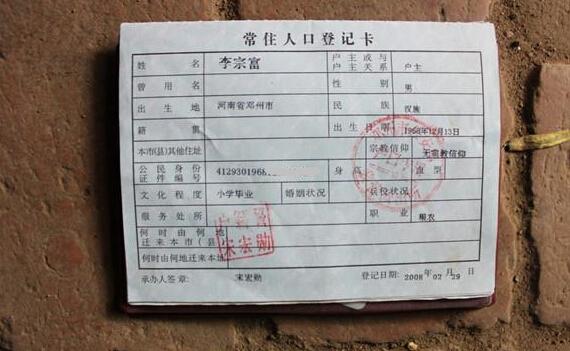 常住人口登记卡
姓名 李宗富 户主或与户主关系 户主
曾用名 性别 男
出生地 河南省邓州市 民族 汉族
籍贯 出生日期 1968年12月13日
本市(县)其他住址 宗教信仰 无宗教信仰
公民身份证件编号 4129301968 身高 血型
文化程度 小学毕业 婚姻状况 兵役状况
服务处所 职业 粮农
何时由何地迁来本市(县)
何时由何地迁来本址
承办人签章: 宋宏勋 登记日期: 2008年02月29日
宋宏勋